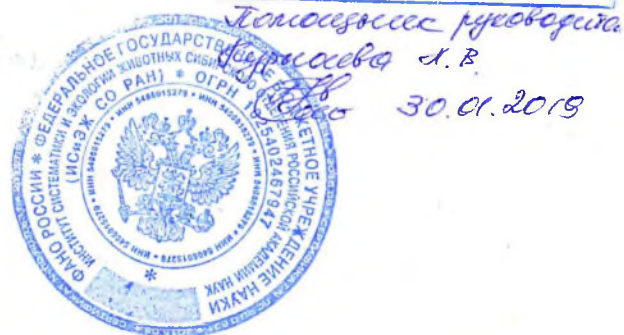 Помощник руководите
Х.В.
30.01.2019
ФАНО РОССИИ * ФЕДЕРАЛЬНОЕ ГОСУДАРСТВЕННОЕ БЮДЖЕТНОЕ УЧРЕЖДЕНИЕ НАУКИ
ИНСТИТУТ СИСТЕМАТИКИ И ЭКОЛОГИИ ЖИВОТНЫХ СИБИРСКОГО ОТДЕЛЕНИЯ РОССИЙСКОЙ АКАДЕМИИ НАУК
(ИСиЭЖ СО РАН) * ОГРН 1025402467947
* ИНН 5408015279 * ИНН 5408015279 * ИНН 5408015279